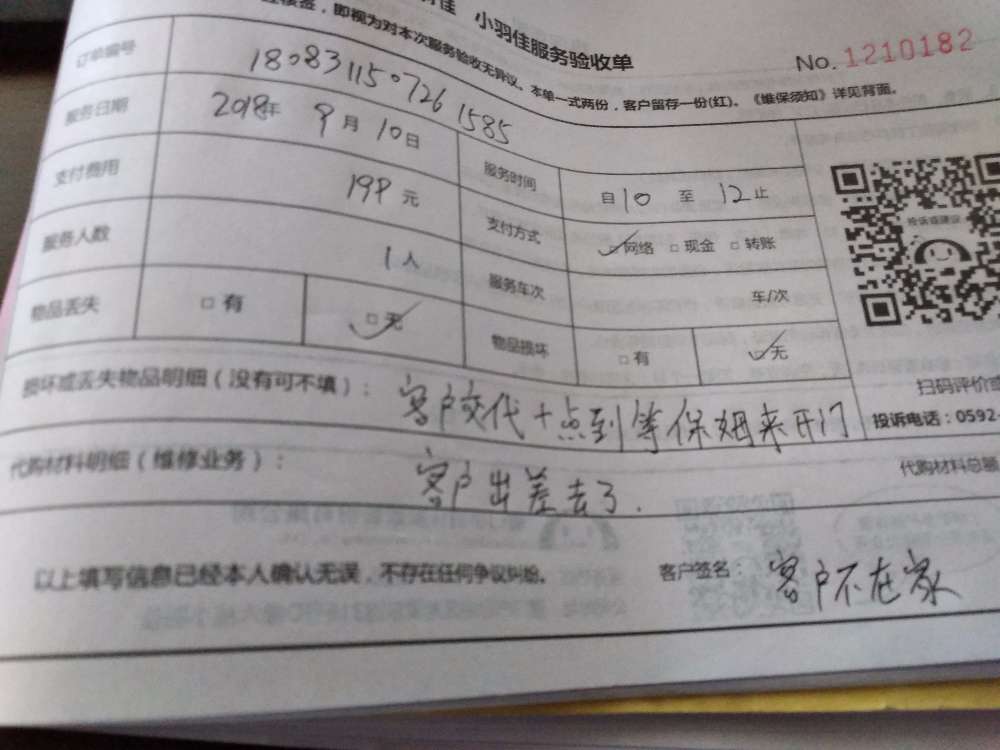 小羽佳服务验收单
No. 1210182
即视为对本次服务验收无异议。本单一式两份，客户留存一份(红)。《维保须知》详见背面。
订单编号 180831150726 1585
服务日期 2018年 9月 10日 服务时间 自 10 至 12 止
支付费用 199 元 支付方式 网络 现金 转账
服务人数 1 人 服务车次 车/次
物品丢失 有 无 物品损坏 有 无
投诉或建议
扫码评价或
投诉电话：0592-
损坏或丢失物品明细（没有可不填）： 客户交代十点到等保姆来开门
代购材料明细（维修业务）： 客户出差去了. 代购材料总额
以上填写信息已经本人确认无误，不存在任何争议纠纷。 客户签名： 客户不在家